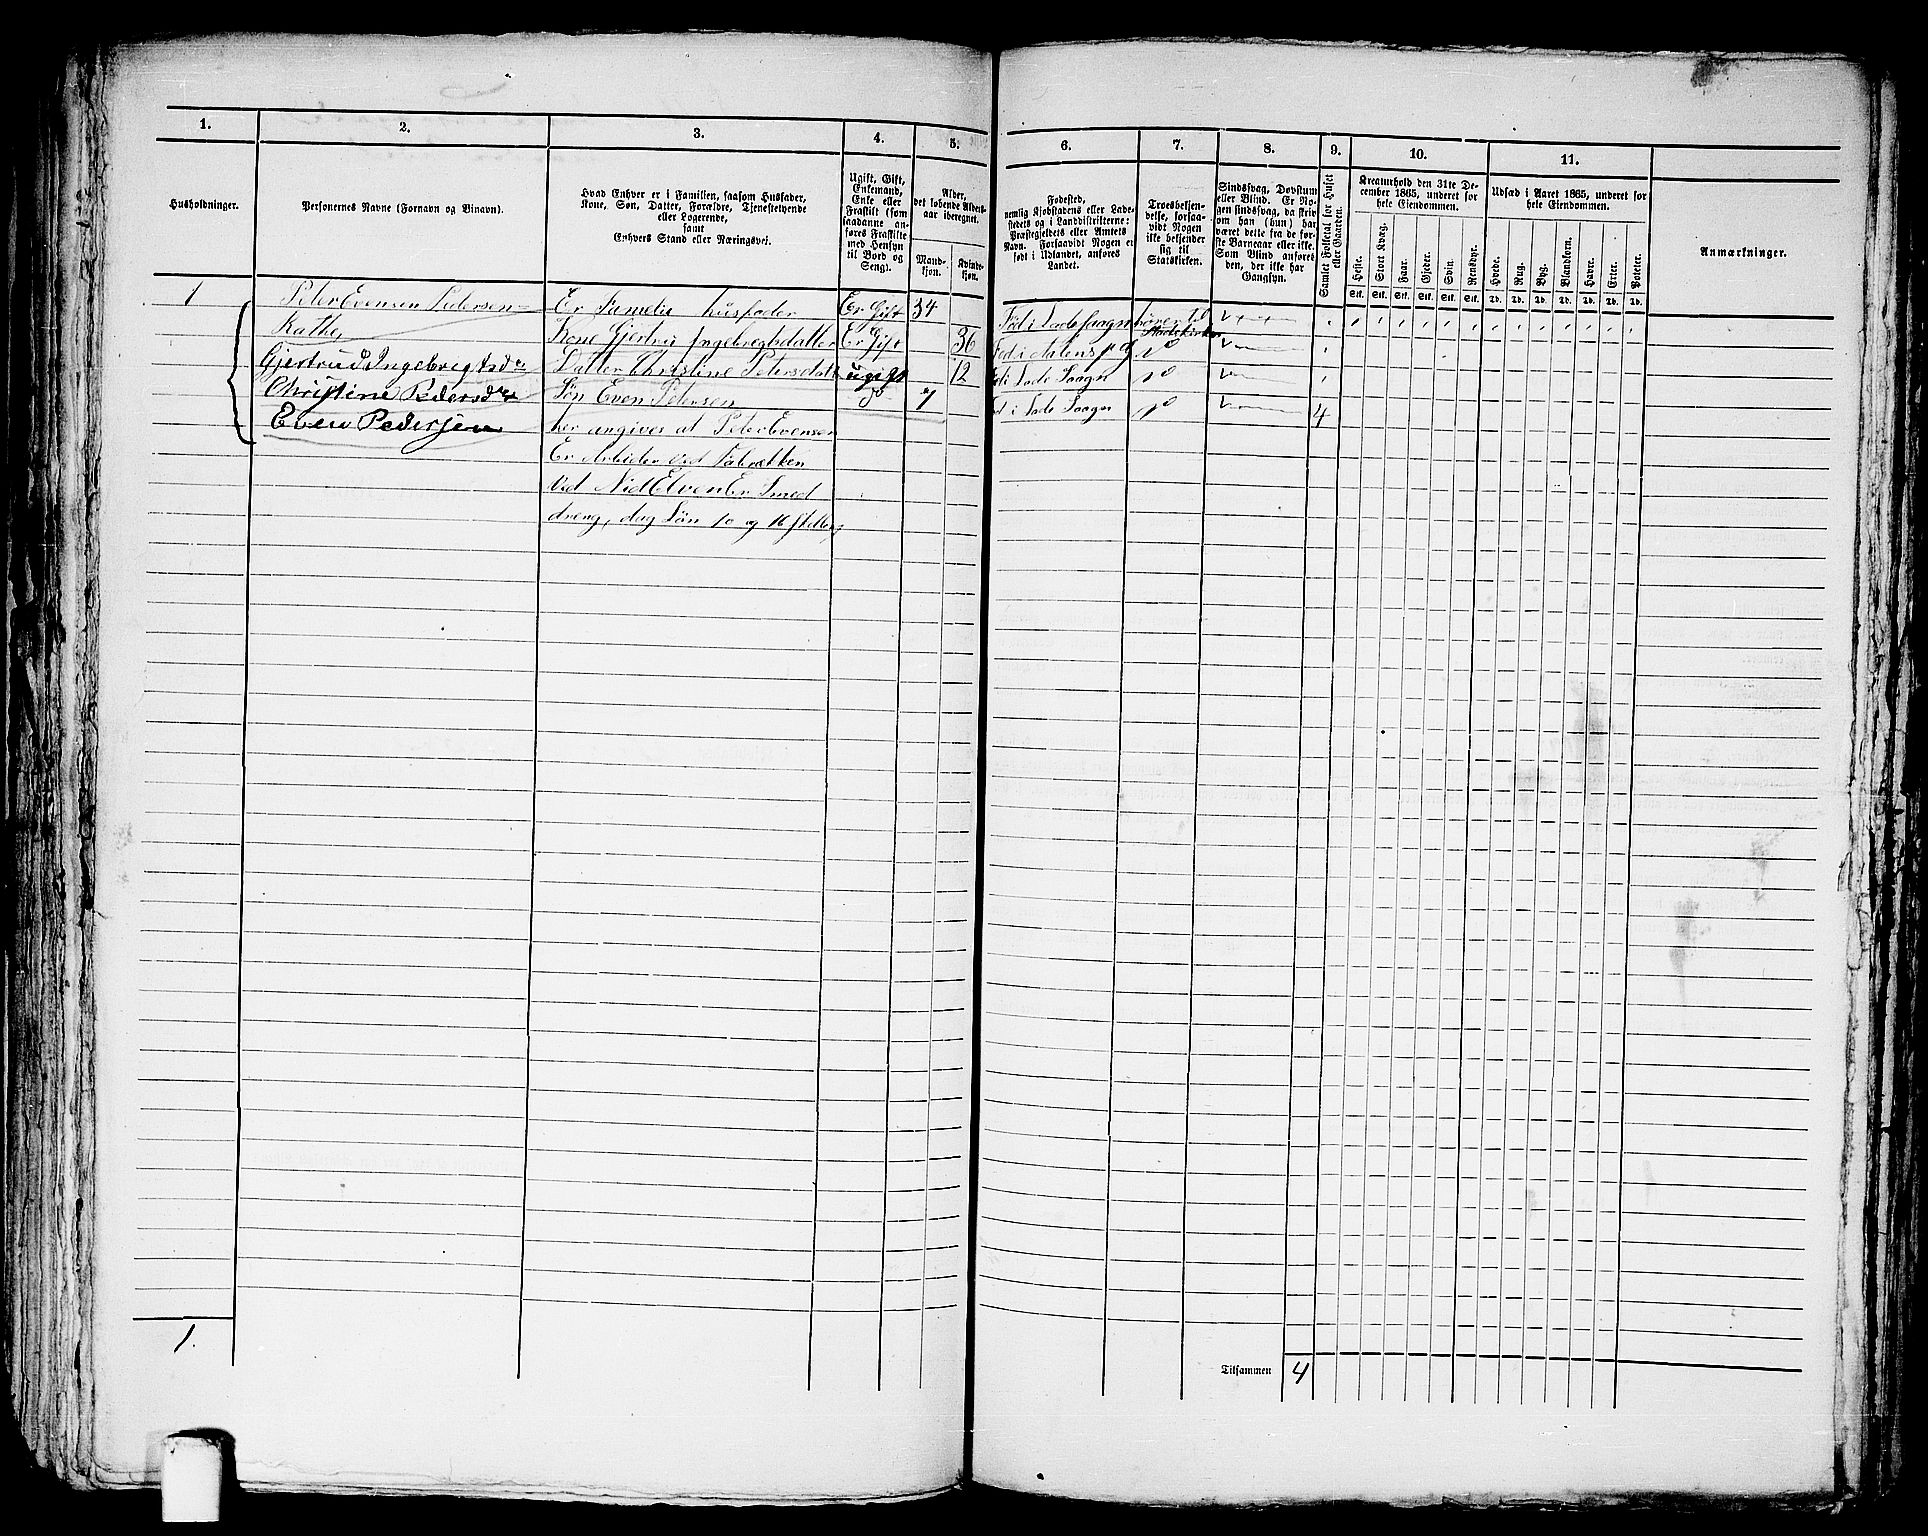 1.
2.
3.
4.
5.
6.
7.
8.
9.
10.
11.
Husholdninger.
Personernes Navne (Fornavn og Binavn).
Hvad Enhver er i Familien, saasom Husfader,
Kone, Søn, Datter, Forældre, Tjenestetyende
eller Logerende,
samt
Enhvers Stand eller Næringsvei.
Ugift, Gift,
Enkemand,
Enke eller
Fraskilt (som
saadanne an-
føres Fraskilte
med Hensyn
til Bord og
Seng).
Alder,
det løbende Alders-
aar iberegnet.
Mand-
kjøn.
Kvinde-
kjøn.
Fødested,
nemlig Kjøbstadens eller Lade-
stedets og i Landdistrikterne:
Præstegjeldets eller Amtets
Navn. Forsaavidt Nogen er
født i Udlandet, anføres
Landet.
Troesbekjen-
delse, forsaa-
vidt Nogen
ikke bekjender
sig til
Statskirken.
Sindssvag, Døvstum
eller Blind. Er No-
gen sindssvag, da skriv
om han (hun) har
været dette fra de før-
ste Barneaar eller ikke.
Som Blind anføres
den, der ikke har
Gangsyn.
Samlet Folketal for Huset
eller Gaarden.
Kreaturhold den 31te De-
cember 1865, underet for
hele Eiendommen.
Heste. Stort Kvæg. Faar. Gjeder. Svin. Rensdyr.
Stk. Stk. Stk. Stk. Stk. Stk.
Udsæd i Aaret 1865, underet for
hele Eiendommen.
Hvede. Rug. Byg. Blankorn. Havre. Erter. Poteter.
Td. Td. Td. Td. Td. Td. Td.
Anmærkninger.
1 Peter Evensen Pedersen Er Familie husfader Er Gift 34 Fød i Lade Saagn hører til Statskirken
Kone Gjertru Ingebregtsdatter Er Gift 36 Fød i Aalens pg do
Gjertrud Ingebrigtsdr Datter Christine Petersdatt ugift 12 Fød i Lade Saagn do
Christine Pedersdr Søn Even Petersen do 7 Fød i Lade Saagn do 4
Even Pedersen her angives at Peter Evensen
Er Arbider ved Fabrækken
Ved Nid Elven Er Smed
dreng, dag Løn 10 og 16 skelleng
1.
Tilsammen 4